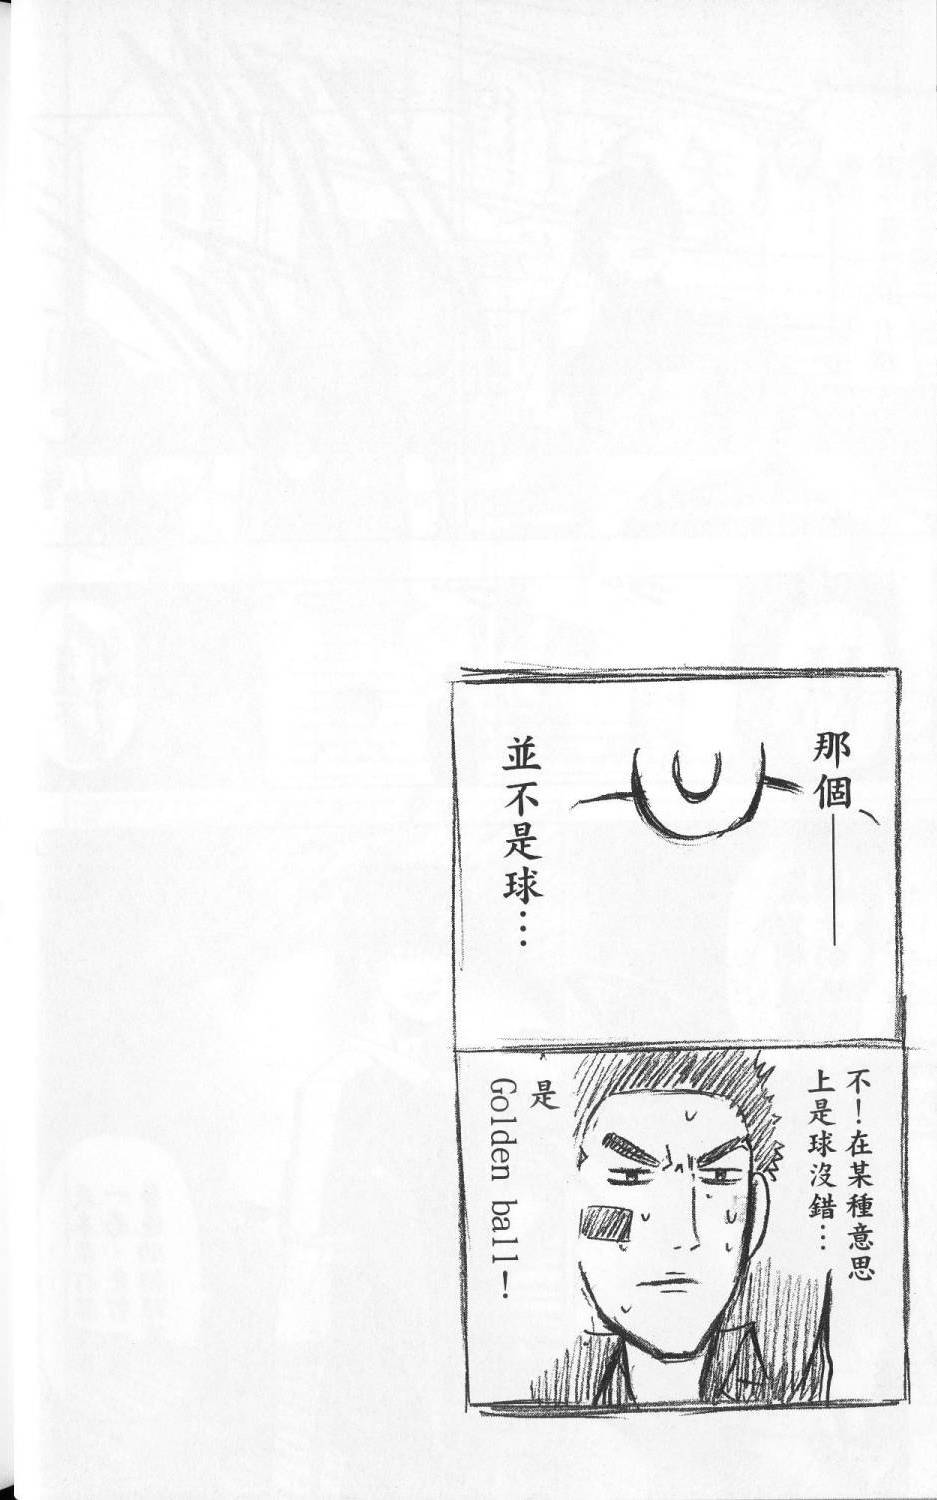 那個──
並不是球…
不！在某種意思
上是球沒錯…
是
Golden ball！